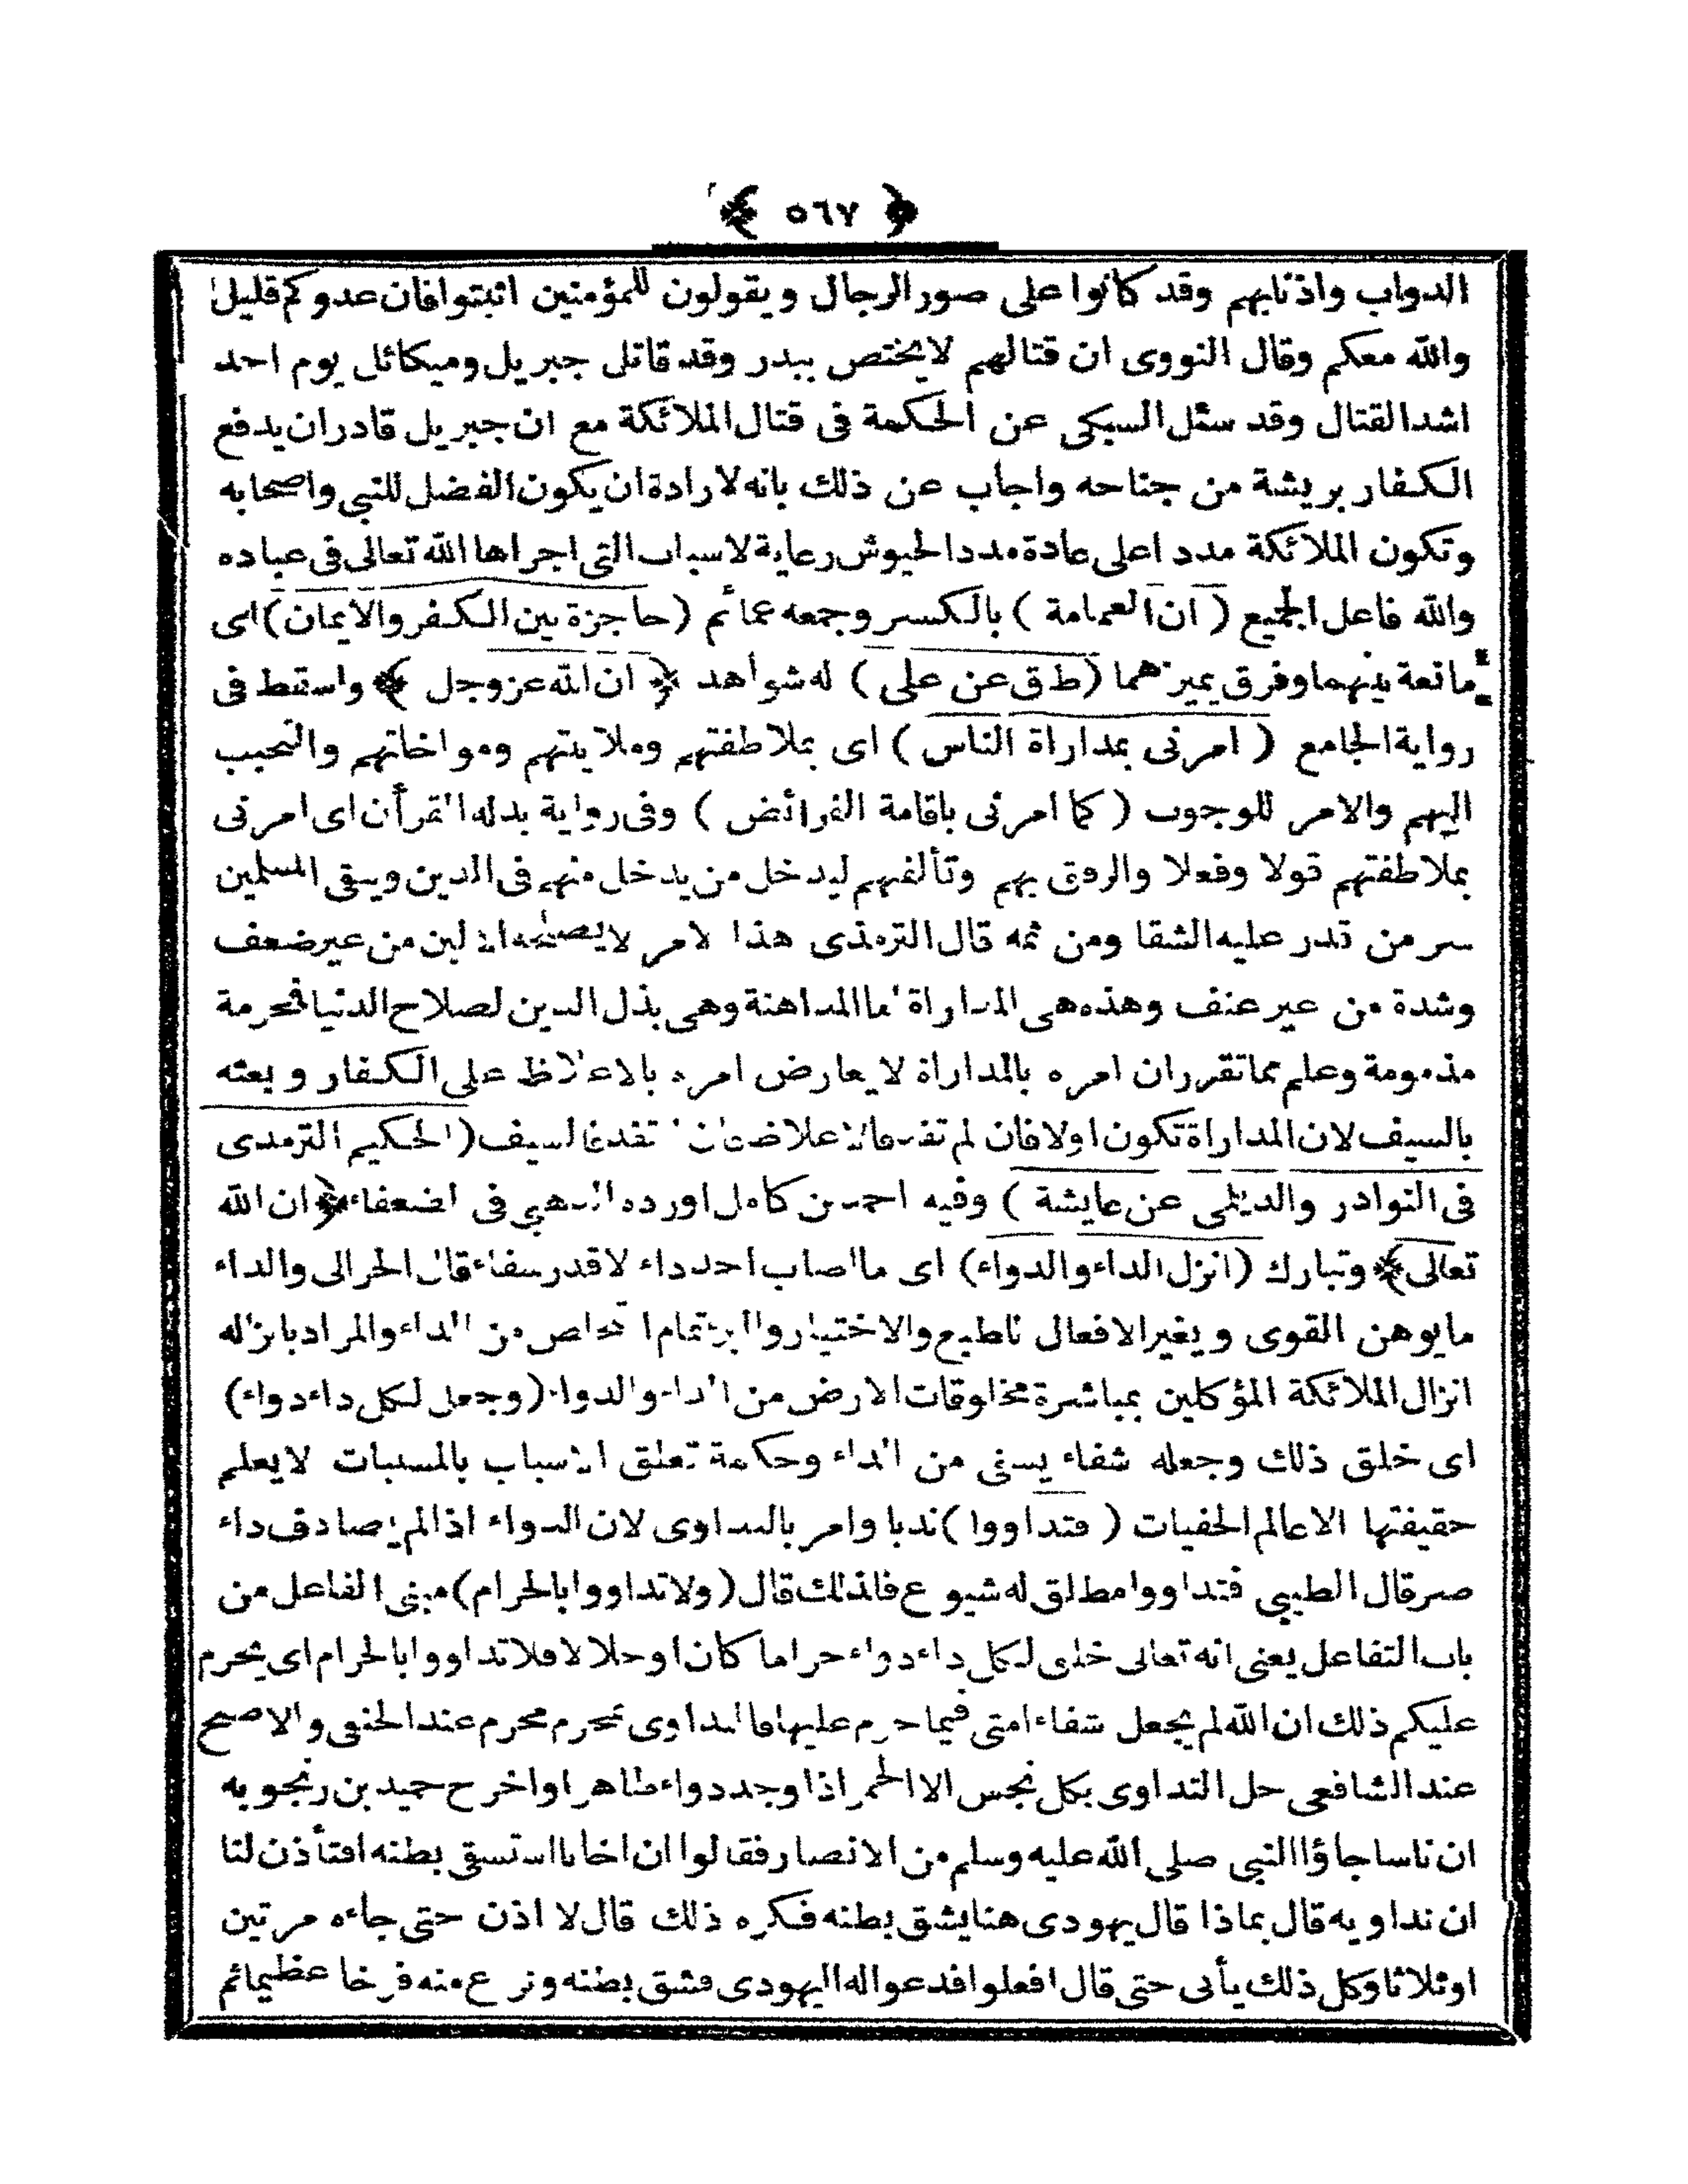 ﴿ ٥٦٧ ﴾
الدواب واذنابهم وقد كانوا على صور الرجال ويقولون للمؤمنين اثبتوا فان عدوكم قليل
والله معكم وقال النووى ان قتالهم لايختص ببدر وقد قاتل جبريل وميكائل يوم احد
اشد القتال وقد سئل السبكى عن الحكمة فى قتال الملائكة مع ان جبريل قادر ان يدفع
الكفار بريشة من جناحه واجاب عن ذلك بانه لارادة ان يكون الفضل للنبى واصحابه
وتكون الملائكة مددا على عادة مدد الجيوش رعاية لاسباب التى اجراها الله تعالى فى عباده
والله فاعل الجميع ( ان العمامة ) بالكسر وجمعه عمائم (حاجزة بين الكفر والايمان) اى
مانعة بينهما وفرق يميزهما (ط ق عن على ) له شواهد ﴿ ان الله عز وجل ﴾ واسقط فى
رواية الجامع ( امرنى بمداراة الناس ) اى بملاطفتهم وملاينتهم ومواخاتهم والتحبب
اليهم والامر للوجوب ( كما امرنى باقامة الفرائض ) وفى رواية بدله القرأن اى امرنى
بملاطفتهم قولا وفعلا والرفق بهم وتألفهم ليدخل من يدخل منهم فى الدين ويبقى المسلمين
سر من قدر عليه الشقا ومن ثمه قال الترمذى هذا لامر لايصلحه الا لين من غير ضعف
وشدة من غير عنف وهذه هى المداراة اما المداهنة وهى بذل الدين لصلاح الدنيا فمحرمة
مذمومة وعلم مما تقرر ان امره بالمداراة لايعارض امره بالاغلاظ على الكفار وبعثه
بالسيف لان المداراة تكون اولا فان لم تفد فالاغلاظ فان تفد فالسيف (الحكيم الترمذى
فى النوادر والديلمى عن عايشة ) وفيه احمد بن كامل اورده الذهبى فى الضعفاء ﴿ ان الله
تعالى ﴾ وتبارك (انزل الداء والدواء) اى ما اصاب احد داء لاقدر شفاء قال الحرالى والداء
مايوهن القوى ويغير الافعال للطبع والاختيار والبرء تمام التخلص من الداء والمراد بانزاله
انزال الملائكة المؤكلين بمباشرة مخلوقات الارض من الداء والدواء (وجعل لكل داء دواء)
اى خلق ذلك وجعله شفاء يسفى من الداء وحكمة تعلق الاسباب بالمسببات لايعلم
حقيقتها الا عالم الخفيات ( فتداووا ) ندبا وامر بالتداوى لان الدواء اذا لم يصادف داء
ضر قال الطيبى فتداووا مطلق له شيوع فلذلك قال (ولا تداووا بالحرام) مبنى الفاعل من
باب التفاعل يعنى انه تعالى خلق لكل داء دواء حراما كان او حلالا فلا تداووا بالحرام اى يحرم
عليكم ذلك ان الله لم يجعل شفاء امتى فيما حرم عليها فالتداوى بمحرم محرم عند الحنفى والاصح
عند الشافعى حل التداوى بكل نجس الا الخمر اذا وجد دواء طاهرا واخرج حميد بن زنجويه
ان ناسا جاؤا النبى صلى الله عليه وسلم من الانصار فقالوا ان اخانا استسقى بطنه افتأذن لنا
ان نداويه قال بماذا قال يهودى هنا يشق بطنه فكره ذلك قال لا اذن حتى جاءه مرتين
او ثلاثا وكل ذلك يأبى حتى قال افعلوا فدعوا له اليهودى فشق بطنه ونزع منه فرخا عظيما ثم